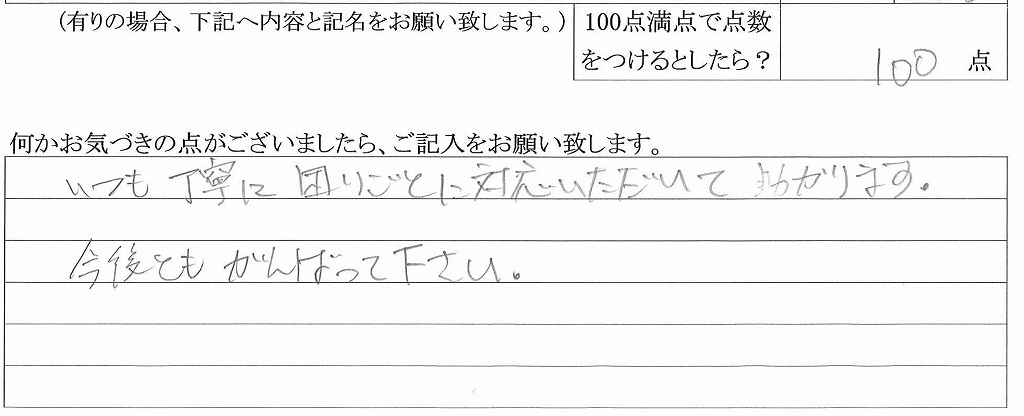 (有りの場合、下記へ内容と記名をお願い致します。)
100点満点で点数
をつけるとしたら?
100 点
何かお気づきの点がございましたら、ご記入をお願い致します。
いつも丁寧に困りごとに対応いただいて助かります。
今後ともがんばって下さい。